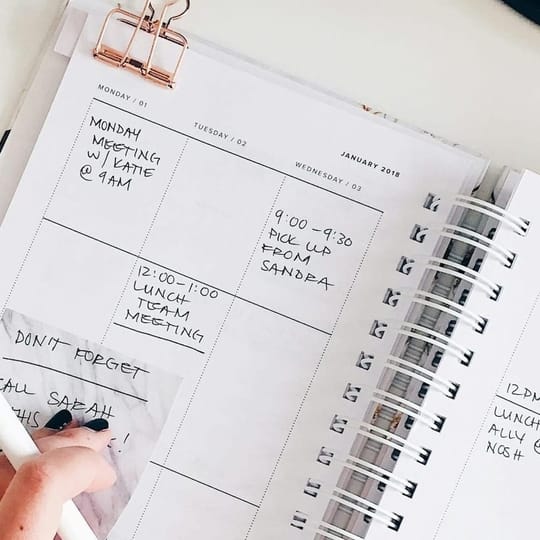 MONDAY / 01
TUESDAY / 02
WEDNESDAY / 03
JANUARY 2018
MONDAY
MEETING
W/ KATIE
@ 9AM
9:00-9:30
PICK UP
FROM
SANDRA
12:00-1:00
LUNCH
TEAM
MEETING
DON'T FORGET
CALL SARAH
THIS
!
12PM
LUNCH
ALLY @
NOSH